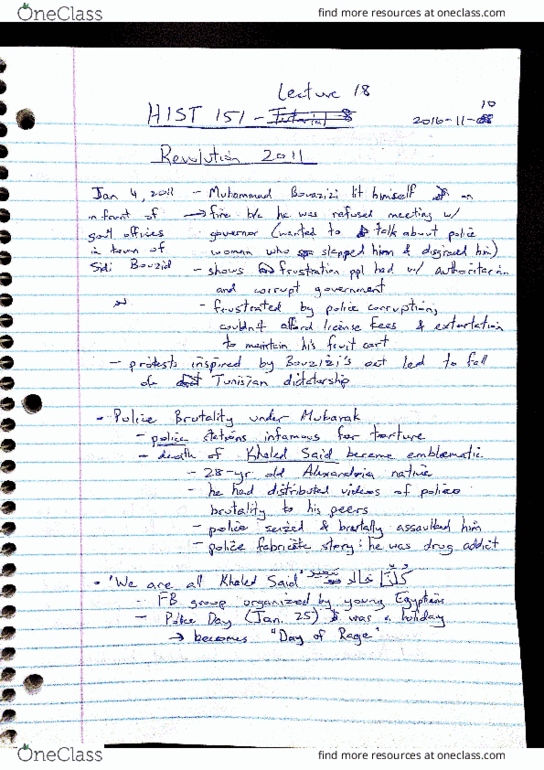 OneClass
find more resources at oneclass.com
Lecture 18
HIST 151 - Tutorial 8
10
2016-11-08
Revolution 2011
Jan 4, 2011 - Muhammad Bouazizi lit himself on
in front of → fire b/c he was refused meeting w/
gov't offices governor (wanted to talk about police
in town of woman who slapped him & disgraced him)
Sidi Bouzid - shows frustration ppl had w/ authoritarian
and corrupt government
- frustrated by police corruption,
couldn't afford license fees & extortation
to maintain his fruit cart
- protests inspired by Bouzizi's act led to fall
of Tunisian dictatorship
• Police Brutality under Mubarak
- police stations infamous for torture
- death of Khaled Said became emblematic
- 28-yr old Alexandria native
- he had distributed videos of police
brutality to his peers
- police seized & brutally assaulted him
- police fabricate story: he was drug addict
• "We are all Khaled Said" كلنا خالد سعيد
- FB group organized by young Egyptians
- Police Day (Jan. 25) was a holiday
→ becomes "Day of Rage"
OneClass
find more resources at oneclass.com